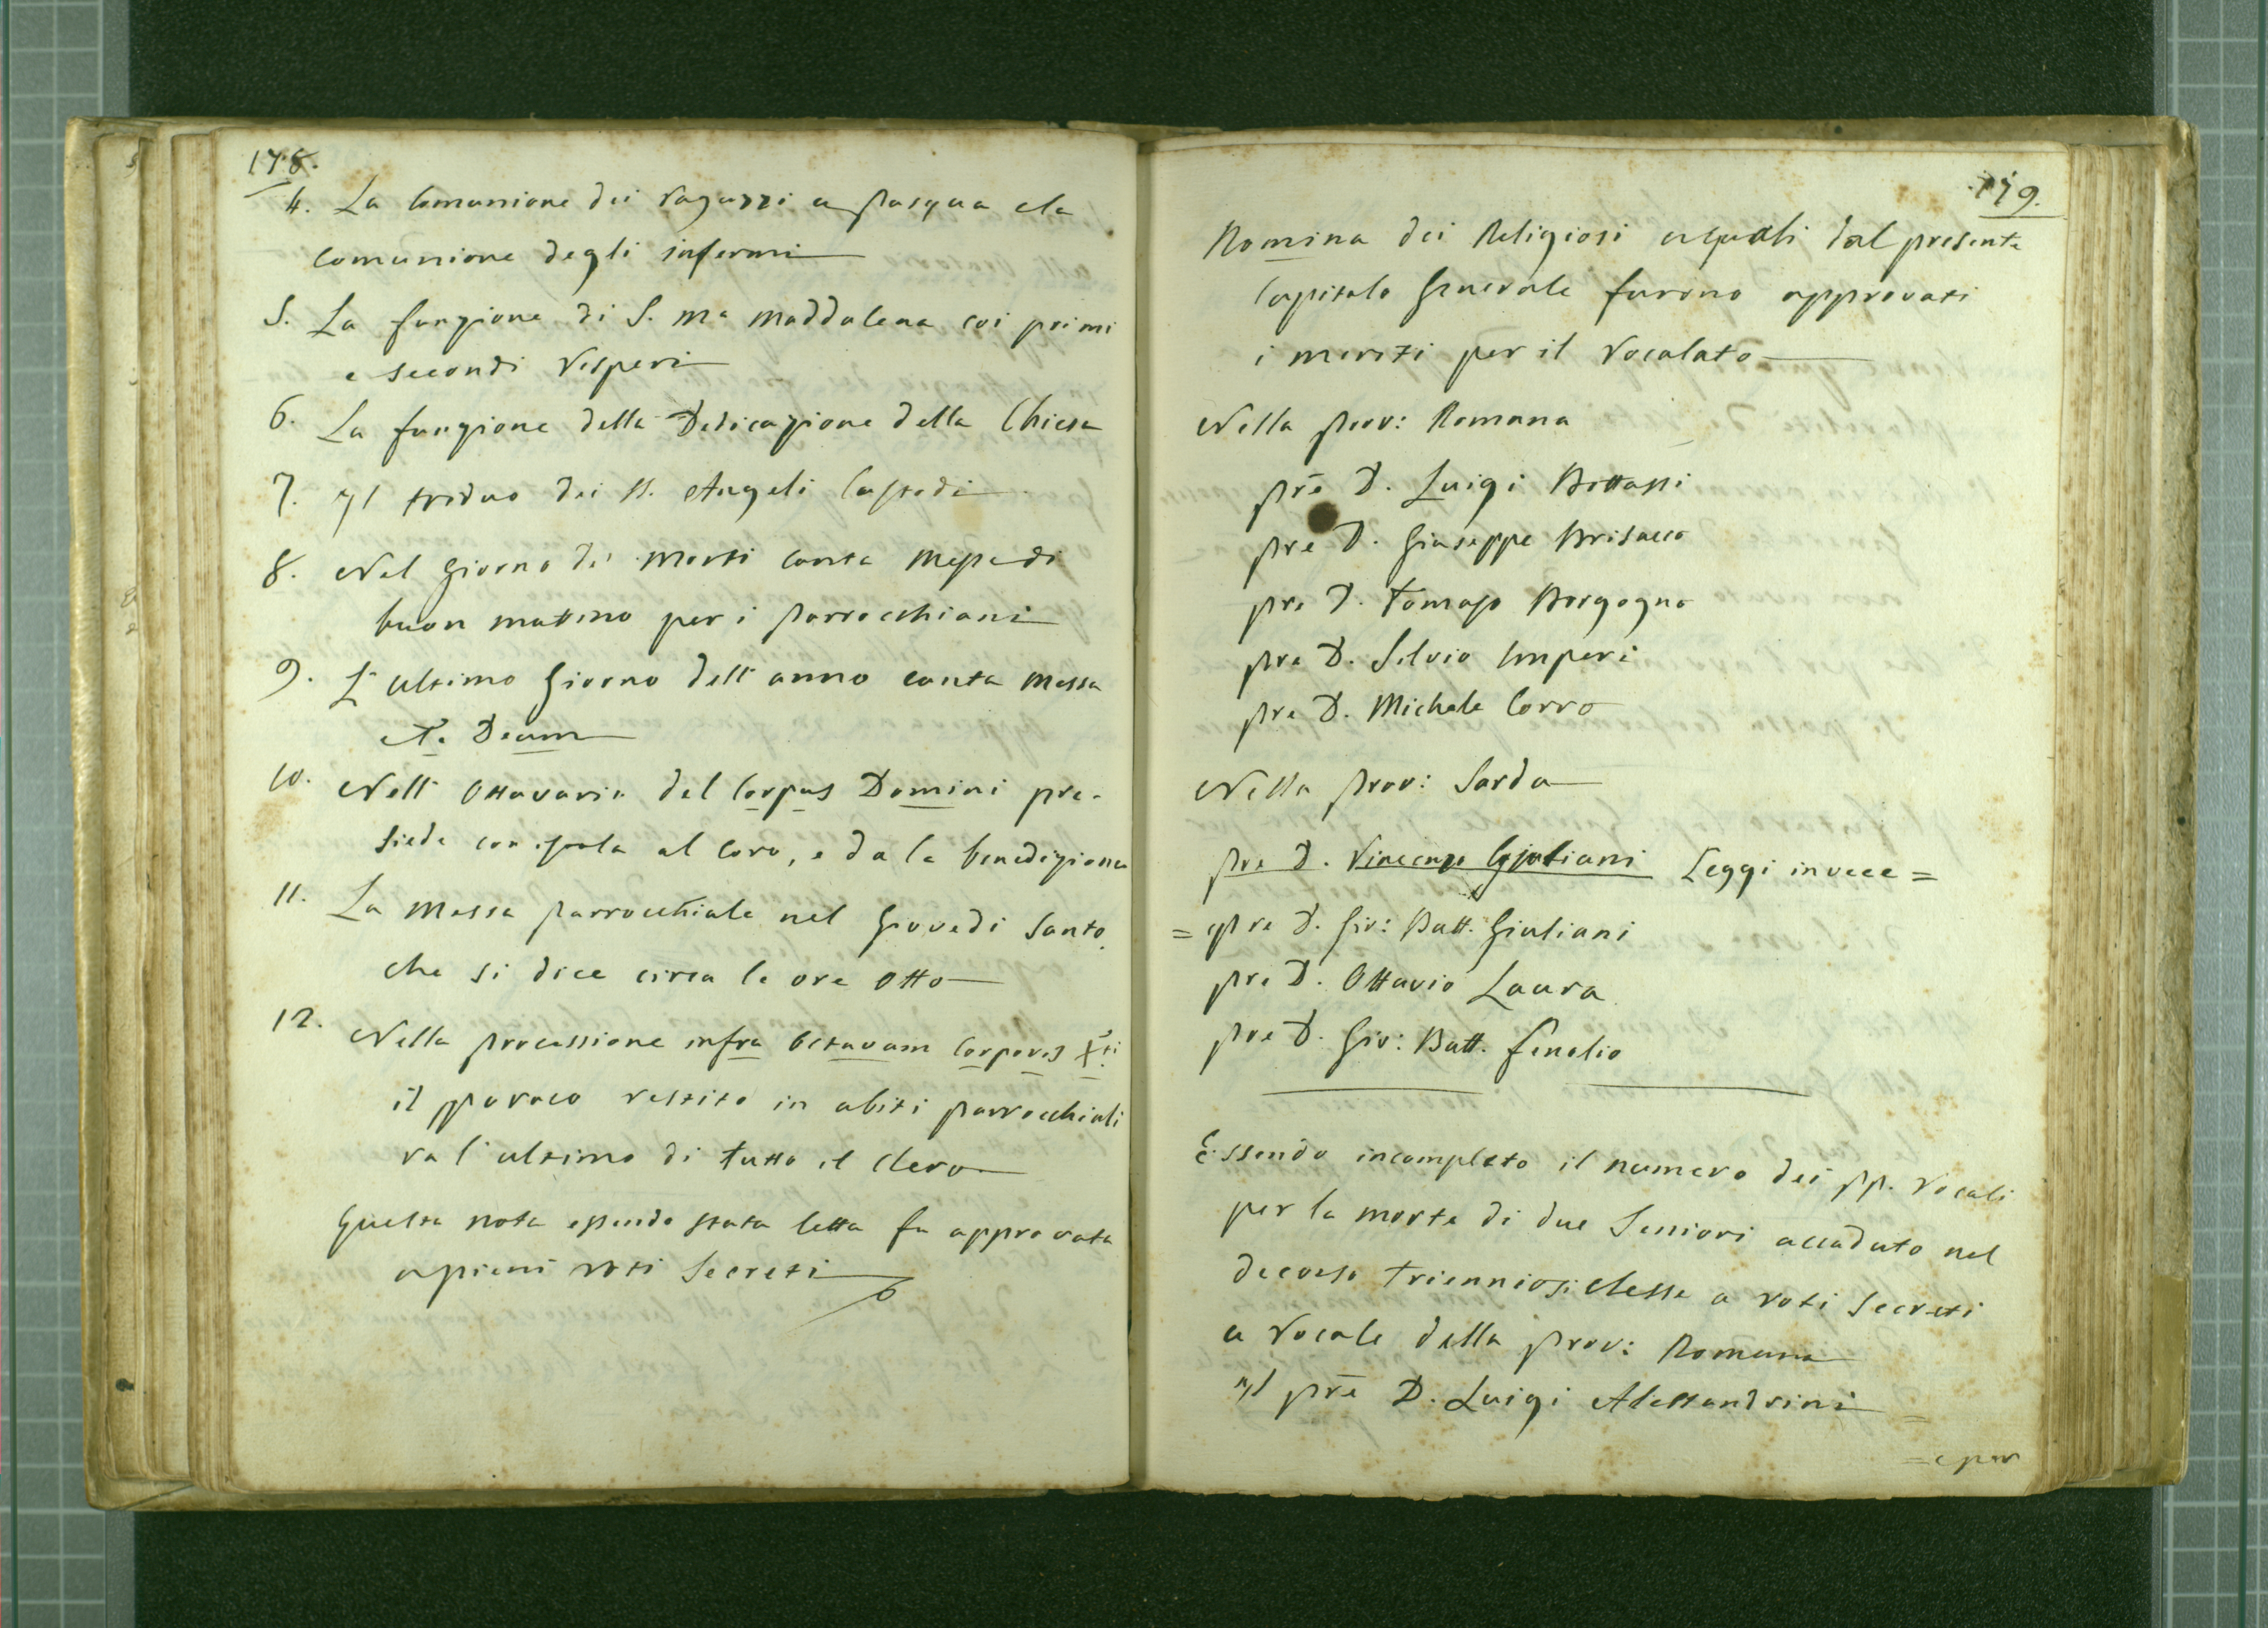 178.
4. La Comunione dei ragazzi a Pasqua e la
comunione degli infermi
5. La funzione di S. Ma Maddalena coi primi
e secondi Vesperi
6. La funzione della Dedicazione della Chiesa
7. Il triduo dei SS. Angeli Custodi
8. Nel giorno dei Morti canta Messa di
buon mattino per i Parrocchiani
9. L'ultimo giorno dell'anno canta Messa
e T. Deum
10. Nell'Ottavario del Corpus Domini pre-
siede con stola al Coro, e da la benedizione
11. La Messa Parrocchiale nel Giovedì Santo
che si dice circa le ore otto
12. Nella processione infra octavam Corporis Xti
il Paroco vestito in abiti Parrocchiali
va l'ultimo di tutto il Clero
Questa nota essendo stata letta fu approvata
a pieni voti secreti
179.
Nomina dei Religiosi ai quali dal presente
Capitolo Generale furono approvati
i meriti per il Vocalato
Nella Prov: Romana
Pre D. Luigi Bottassi
Pre D. Giuseppe Brisacco
Pre D. Tomaso Borgogno
Pre D. Silvio Imperi
Pre D. Michele Corro
Nella Prov: Sarda
Pre D. Vincenzo Giuliani Leggi invece =
= Pre D. Gio: Batt. Giuliani
Pre D. Ottavio Laura
Pre D. Gio: Batt. Fenolio
Essendo incompleto il numero dei PP. Vocali
per la morte di due Seniori accaduto nel
decorso triennio si elesse a voti secreti
a Vocale della Prov: Romana
Il Pre D. Luigi Alessandrini =
= e per